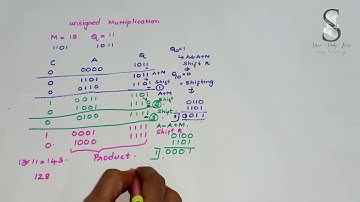 unsigned Multiplication
M = 13 Q = 11
1101 1011
C A Q
0 0000 1011
0 1101 1011 A+M
0 0110 1101 Shift - ①
1 0011 1101 A+M
0 1001 1110 Shift - ②
0 0100 1111 Shift - ③
A ← A+M.
1 0001 1111
0 1000 1111 Shift R
Product.
13*11 = 143
128
Q0=1
A ← A+M
Shift R
Q0=0
→ Shifting
0110
1101
10011
0100
1101
1]0001
S